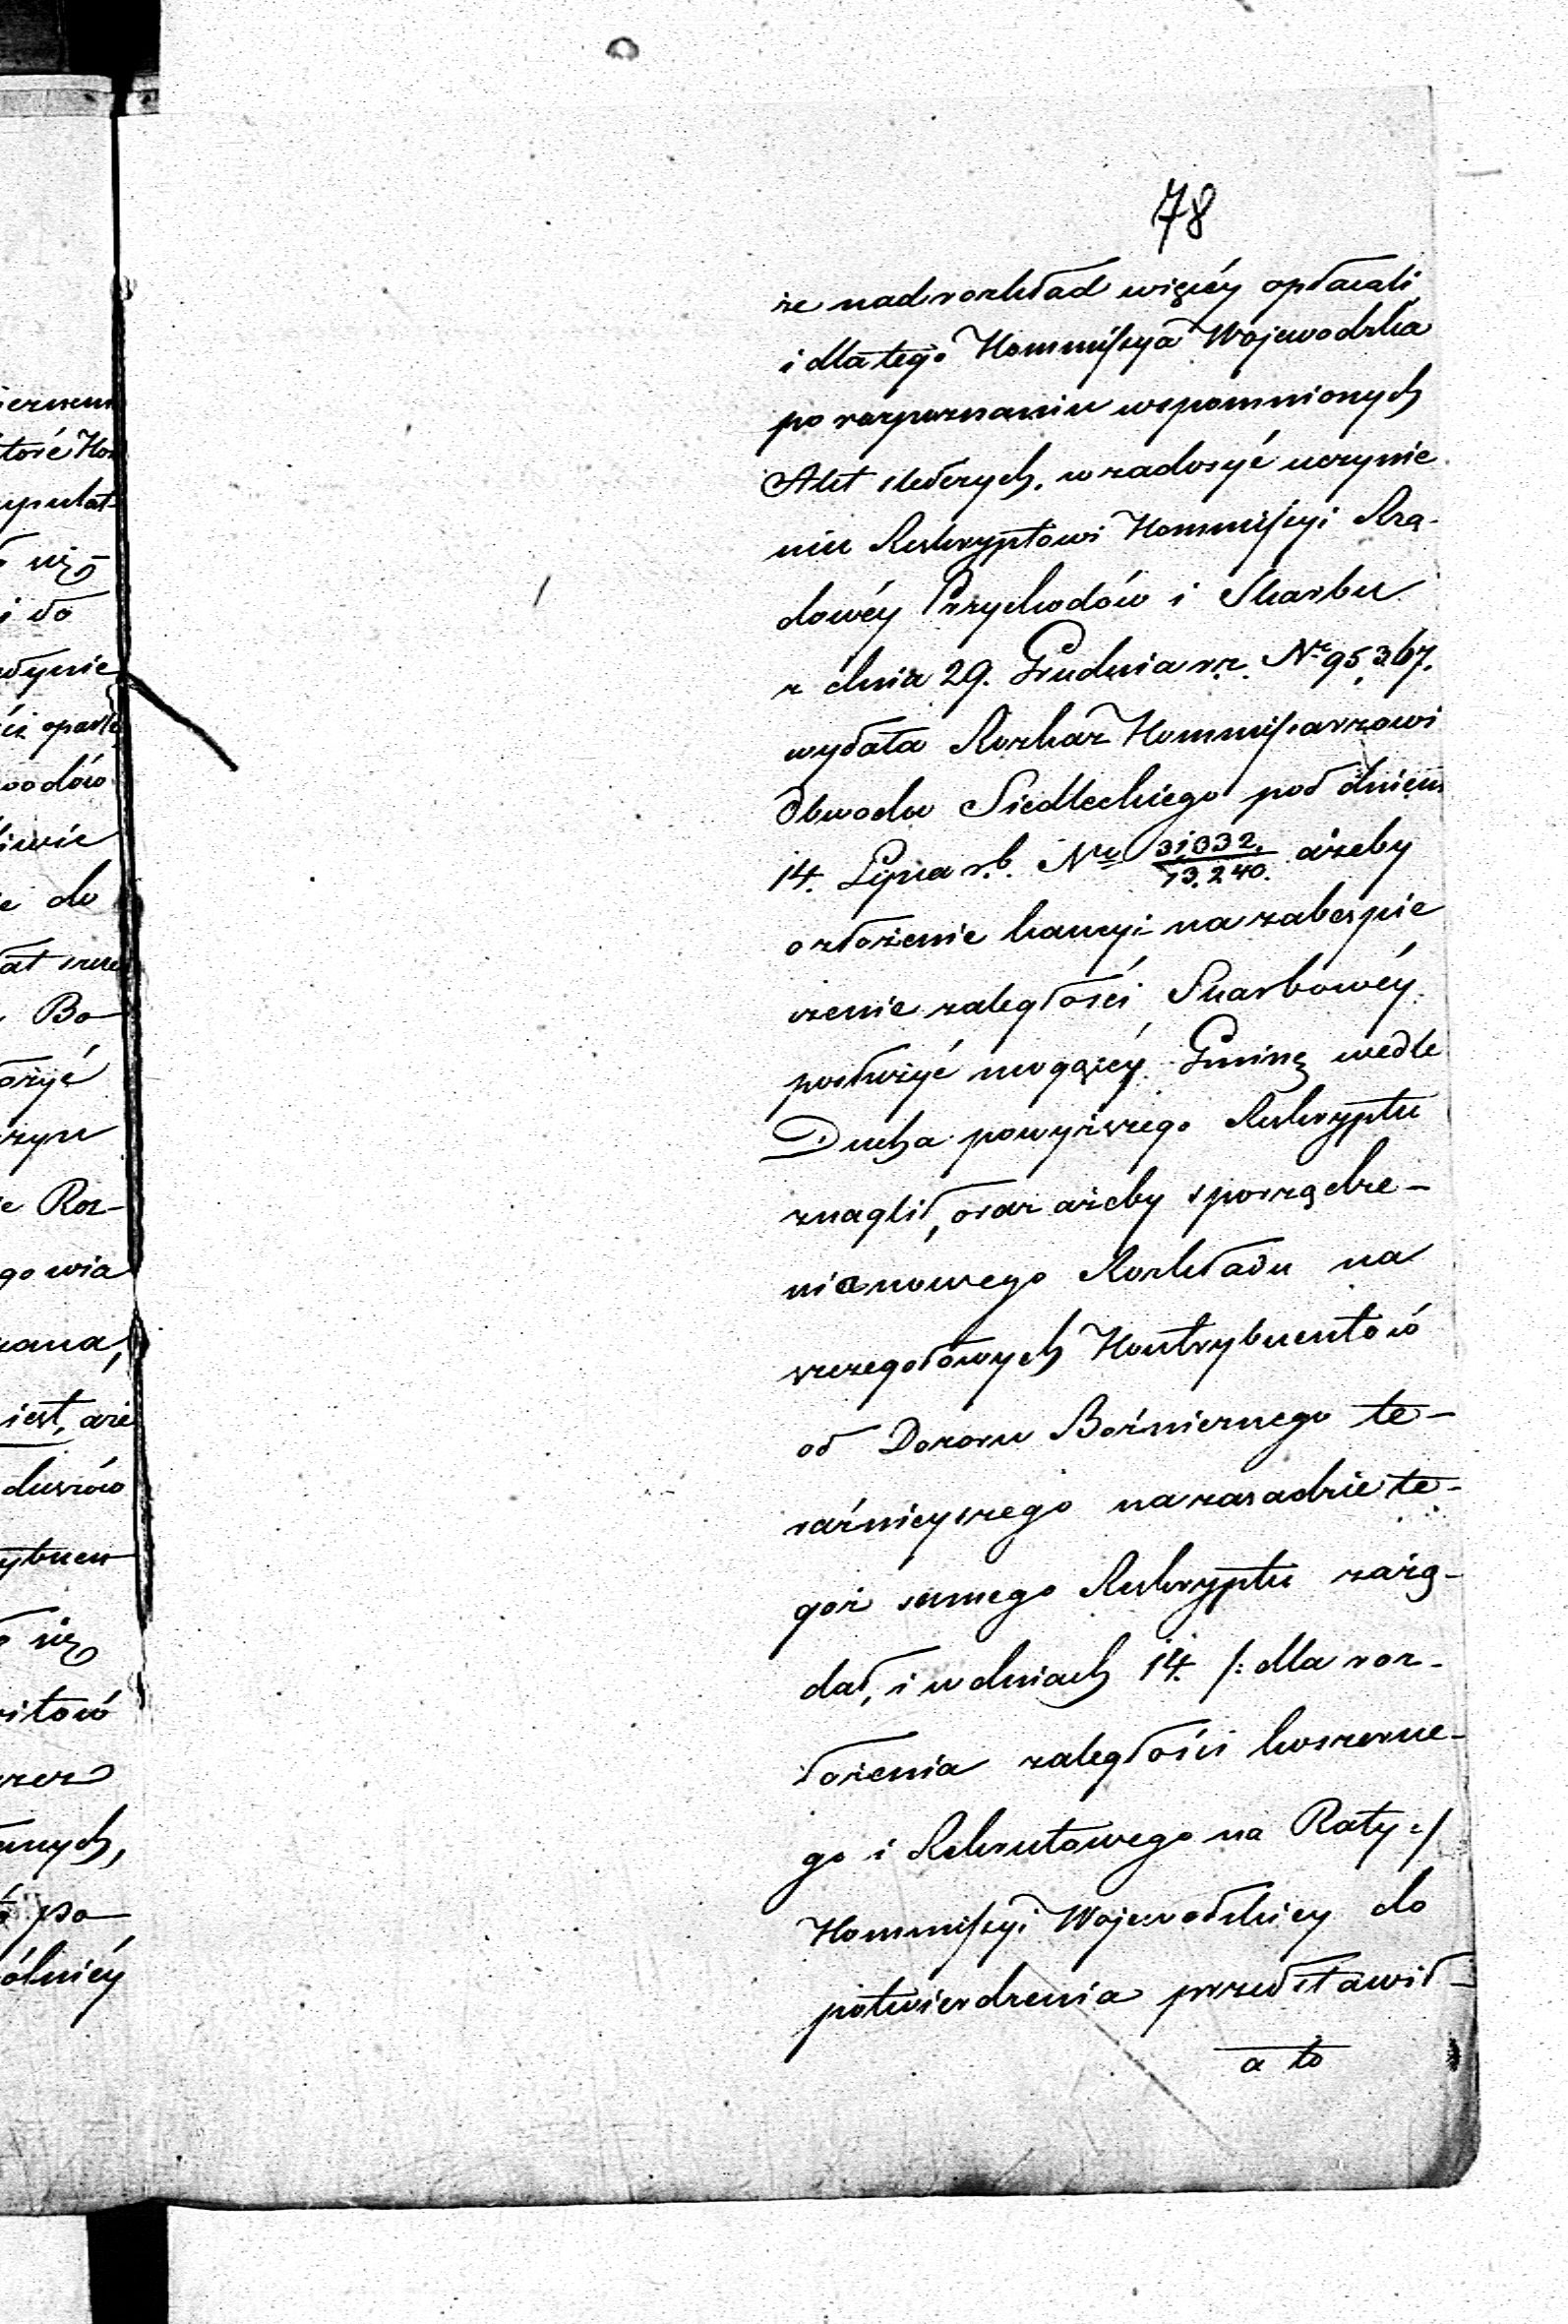 78
że nad rozkład więcéy opłacali
i dla tego Kommissya Wojewodzka
po rozpoznaniu wspomnionych
Akt śledczych, w zadosyć uczynie
niu Reskryptowi Kommissyi Rzą-
dowéy Przychodów i Skarbu
z dnia 29. Grudnia r.z. Nr 95,367.
wydała Rozkaz Kommissarzowi
Obwodu Siedleckiego pod dniem
14. Lipca r.b. Nro 31,332./13,240. ażeby
o złożenie kaucyi na zabespie
czenie zaległości Skarbowéy
posłużyć mogącéy Gminę wedle
Ducha powyższego Reskryptu
znaglił, oraz ażeby sporządze-
nia nowego Rozkładu na
szczegółowych Kontrybuentów
od Dozoru Bożnicznego te-
raźnieyszego na zasadzie te-
goż samego Reskryptu zażą-
dał, i w dniach 14. /: dla roz-
łożenia zaległości koszerne-
go i Rekrutowego na Raty :/
Kommissyi Wojewodzkiey do
potwierdzenia przedstawił
a to
iernem
tóré Ko
i do
oodów
e do
Bo-
ożyć
czyn
e Roz-
go wia
iest, aże
duszów
ybuen
się
itów
rzez
anych,
po
ólniéy